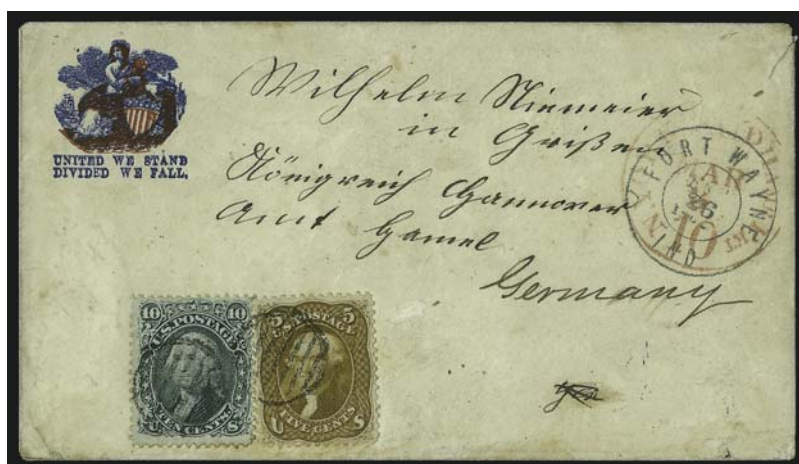 UNITED WE STAND
DIVIDED WE FALL.
Wilhelm Niemeier
in Grißen
Königreich Hannover
Amt Hamel
Germany
FORT WAYNE
IND
26
10
10 10
U.S. POSTAGE
TEN CENTS
U S
5 5
U.S. POSTAGE
FIVE CENTS
U S